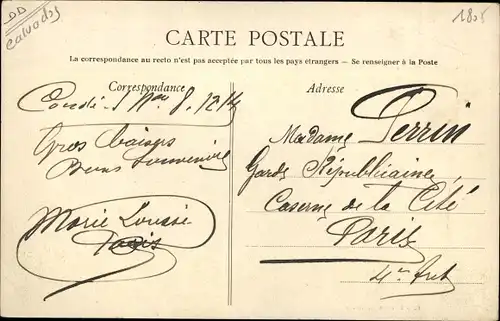 DD
Calvados
1805
CARTE POSTALE
La correspondance au recto n'est pas acceptée par tous les pays étrangers — Se renseigner à la Poste
Correspondance
Adresse
Condé
Gros baisers
Bons Souvenirs
Marie Louise
Paris
Madame Perrin
Garde Républicaine
Caserne de la Cité
Paris
4me Arrt